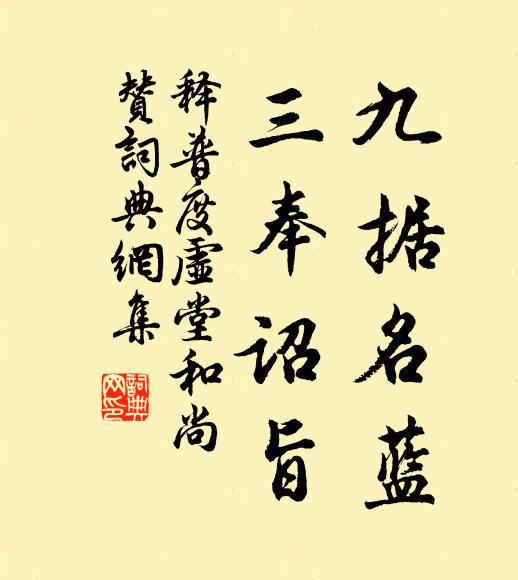 九据名蓝
三奉诏旨
释普度虚堂和尚
赞詞典網集
詞典
网印